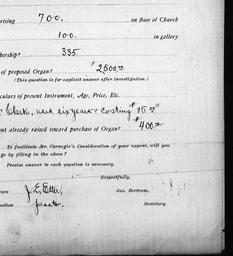 rising 700. on floor of Church
100. in gallery
bership? 335
of proposed Organ? $2500.00
(This question is for explicit answer after investigation.)
culars of present Instrument, Age, Price, Etc.
Clark, used six years & costing $85.00
nt already raised toward purchase of Organ? $400.00
To facilitate Mr. Carnegie's Consideration of your appeal, will you
ge by filling in the above?
Precise answer to each question is necessary.
Respectfully,
ure J. E. Etter, Jas. Bertram,
ation Secretary.